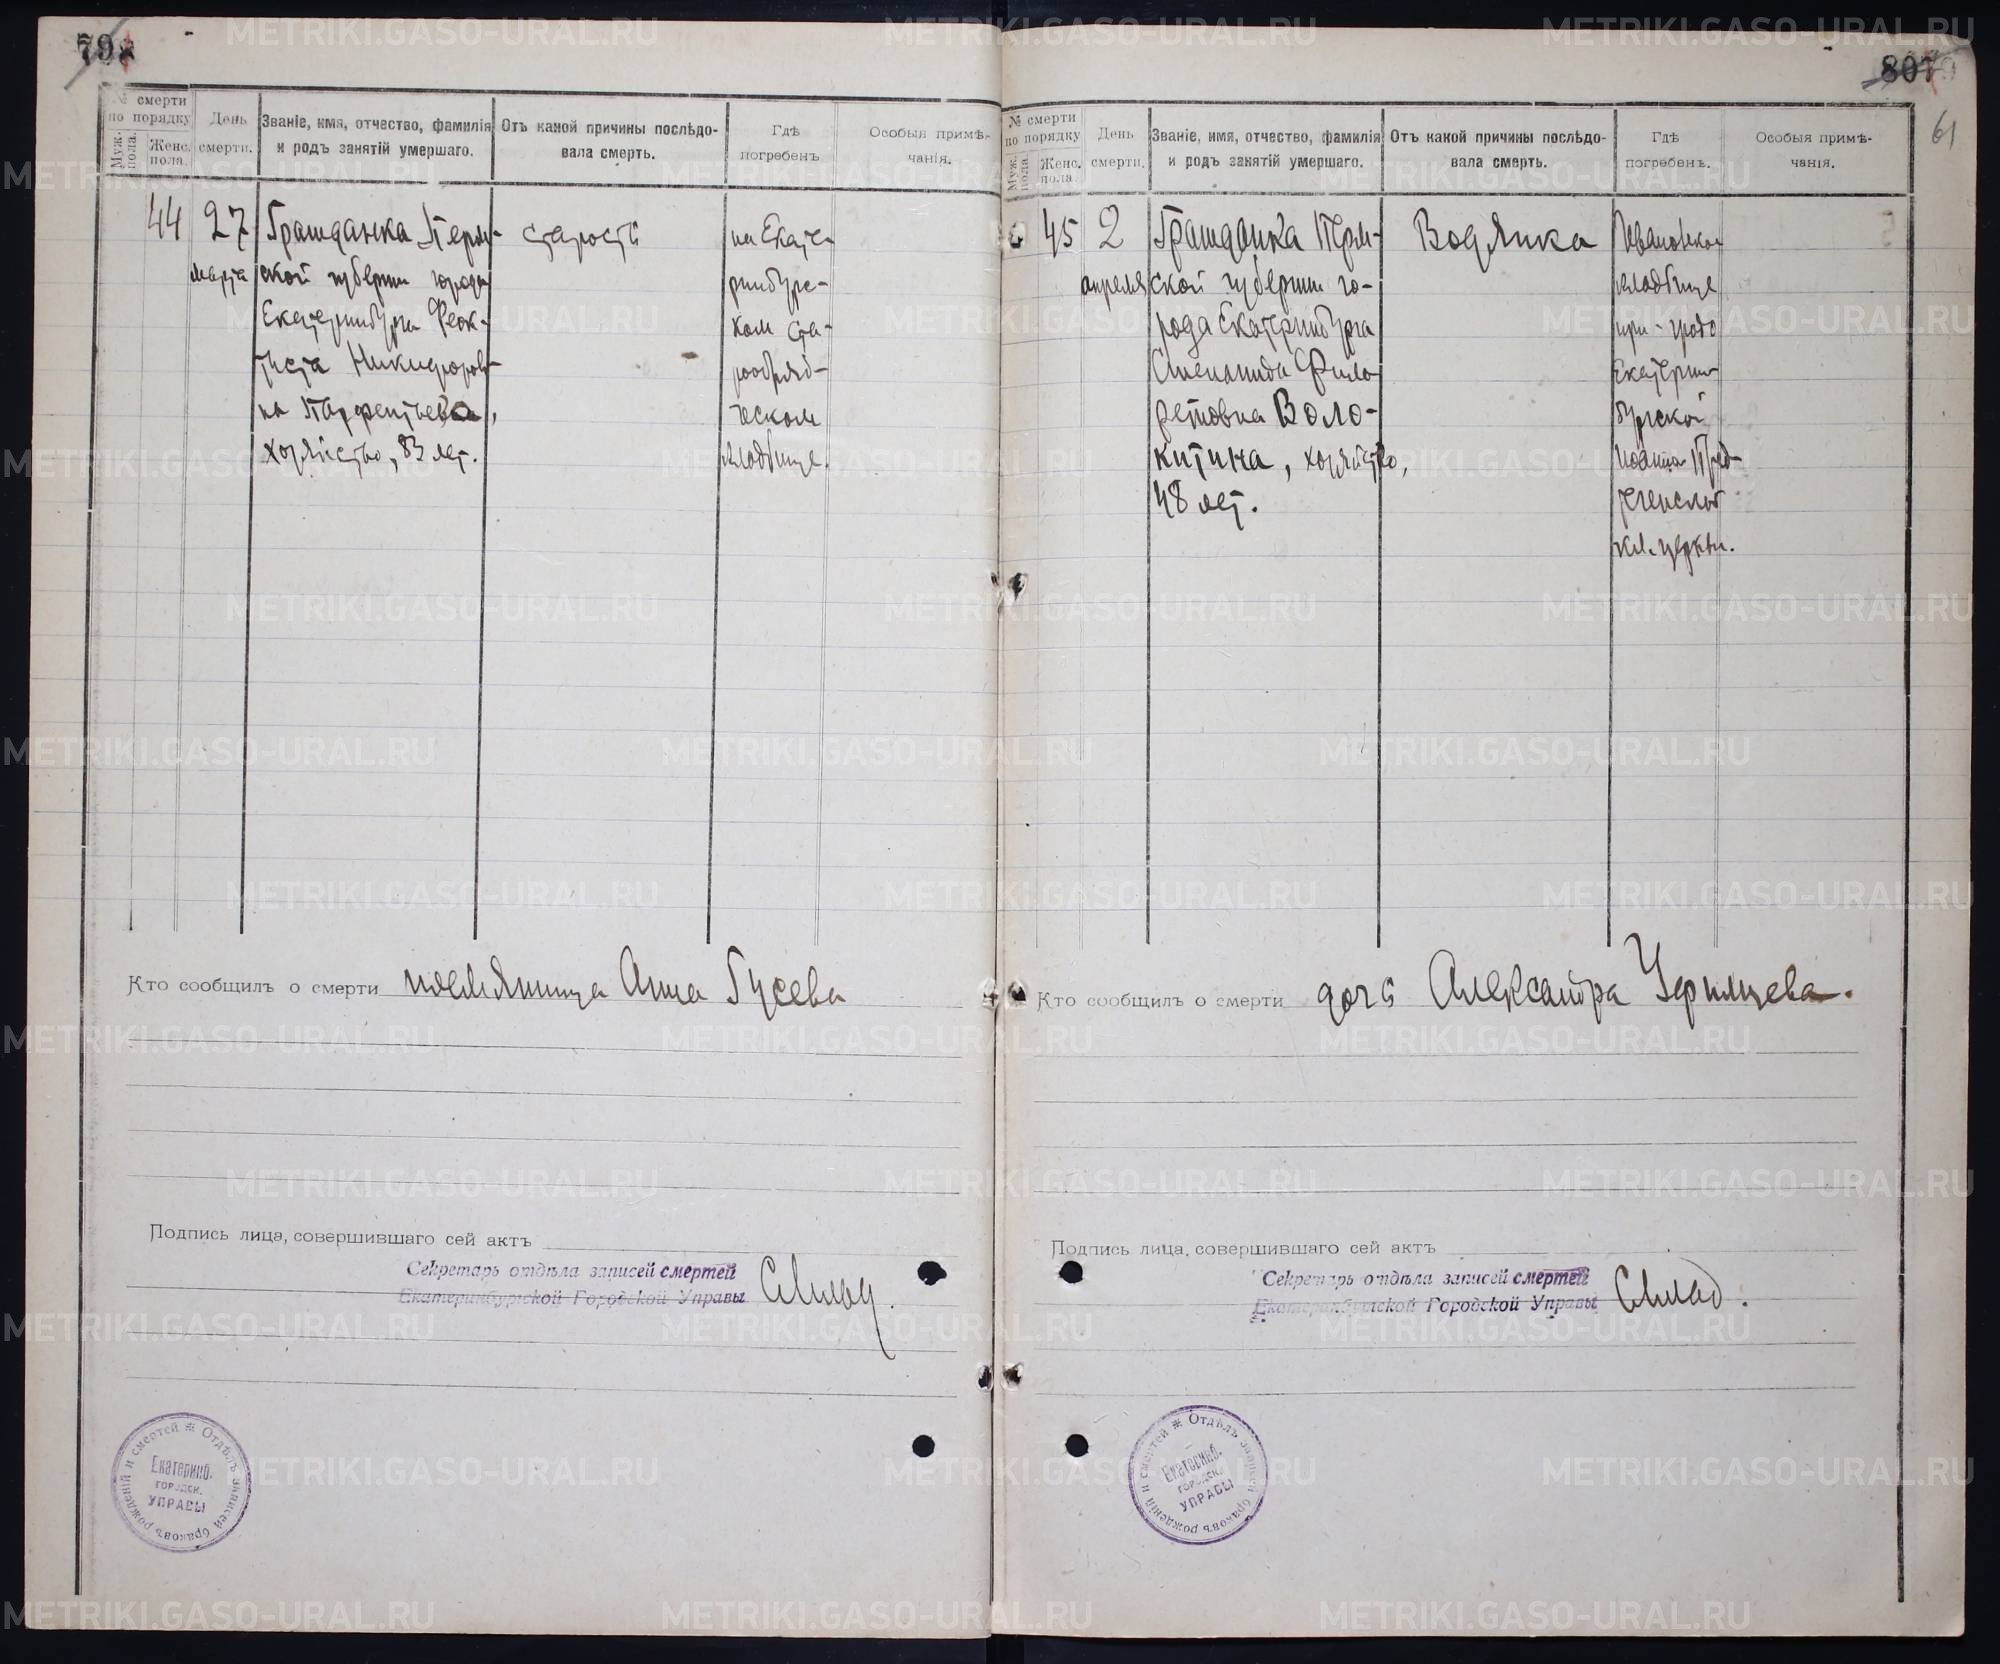 79
№ смерти
по порядку
Муж. пола.
Женс. пола.
День
смерти.
Званіе, имя, отчество, фамилія
и родъ занятій умершаго.
Отъ какой причины послѣдо-
вала смерть.
Гдѣ
погребенъ
Особыя примѣ-
чанія.
44
27
марта
Гражданка Перм-
ской губернии города
Екатеринбурга Феок-
тиста Никифоров-
на Парфентьева,
хозяйство, 83 лет.
старость
на Екате-
ринбургс-
ком ста-
рообряд-
ческом
кладбище.
Кто сообщилъ о смерти племянница Анна Гусева
Подпись лица, совершившаго сей актъ
Секретарь отдѣла записей смертей
Екатеринбургской Городской Управы
Отдѣлъ записей браковъ рожденій и смертей
Екатеринб.
городск.
управы
807
61
№ смерти
по порядку
Муж. пола.
Женс. пола.
День
смерти.
Званіе, имя, отчество, фамилія
и родъ занятій умершаго.
Отъ какой причины послѣдо-
вала смерть.
Гдѣ
погребенъ.
Особыя примѣ-
чанія.
45
2
апреля
Гражданка Перм-
ской губернии го-
рода Екатеринбурга
Степанида Фила-
ретовна Воло-
китина, хозяйство,
48 лет.
Водянка
Ивановское
кладбище
при градо
Екатерин-
бургской
Иоанна Пред-
теченской
кл. церкви.
Кто сообщилъ о смерти дочь Александра Уфимцева.
Подпись лица, совершившаго сей актъ
Секретарь отдѣла записей смертей
Екатеринбургской Городской Управы
Отдѣлъ записей браковъ рожденій и смертей
Екатеринб.
городск.
управы
METRIKI.GASO-URAL.RU